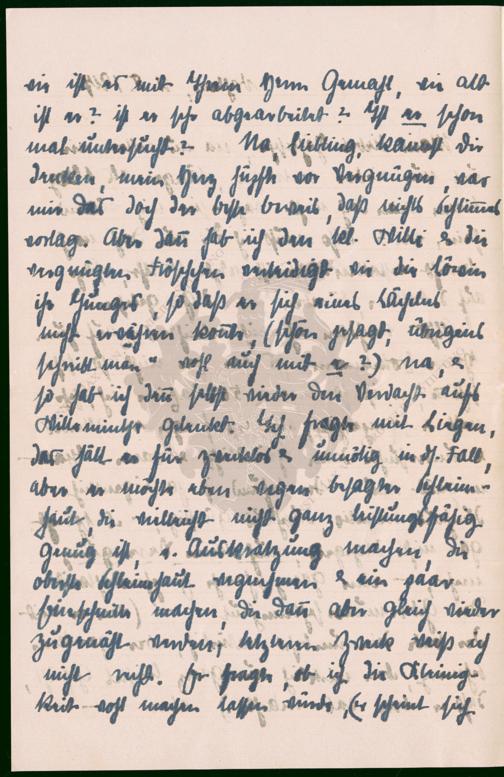 wie ist es mit Ihrem Herrn Gemahl, wie alt
ist er? ist er sehr abgearbeitet? Ist er schon
mal untersucht? Na, Liebling, kannst Dir
denken, mein Herz hüpfte vor Vergnügen, war
mir das doch der beste Beweis, daß nichts schlimmes
vorlag. Aber dann hab ich den kl. Willi & die
vergnügten Fröschchen verteidigt wie die Löwin
ihr Junges, so daß er sich eines Lächelns
nicht erwähren konnte, (schön gesagt, übrigens
schreibt man " wohl auch mit e?) na, &
so hab ich dann selbst wieder den Verdacht aufs
Willeminche gelenkt. Ich fragte mit Liegen,
das hält er für zwecklos & unnötig in ds. Fall,
aber er möchte eben wegen besagter Schleim-
haut, die vielleicht nicht ganz leistungsfähig
genug ist, e. Auskratzung machen, die
oberste Schleimhaut wegnehmen & ein paar
einschnitte machen, die dann aber gleich wieder
zugenäht werden; letzteren Zweck weiß ich
nicht recht. Er fragte, ob ich die Kleinig-
keit wohl machen lassen würde, (er scheint sich